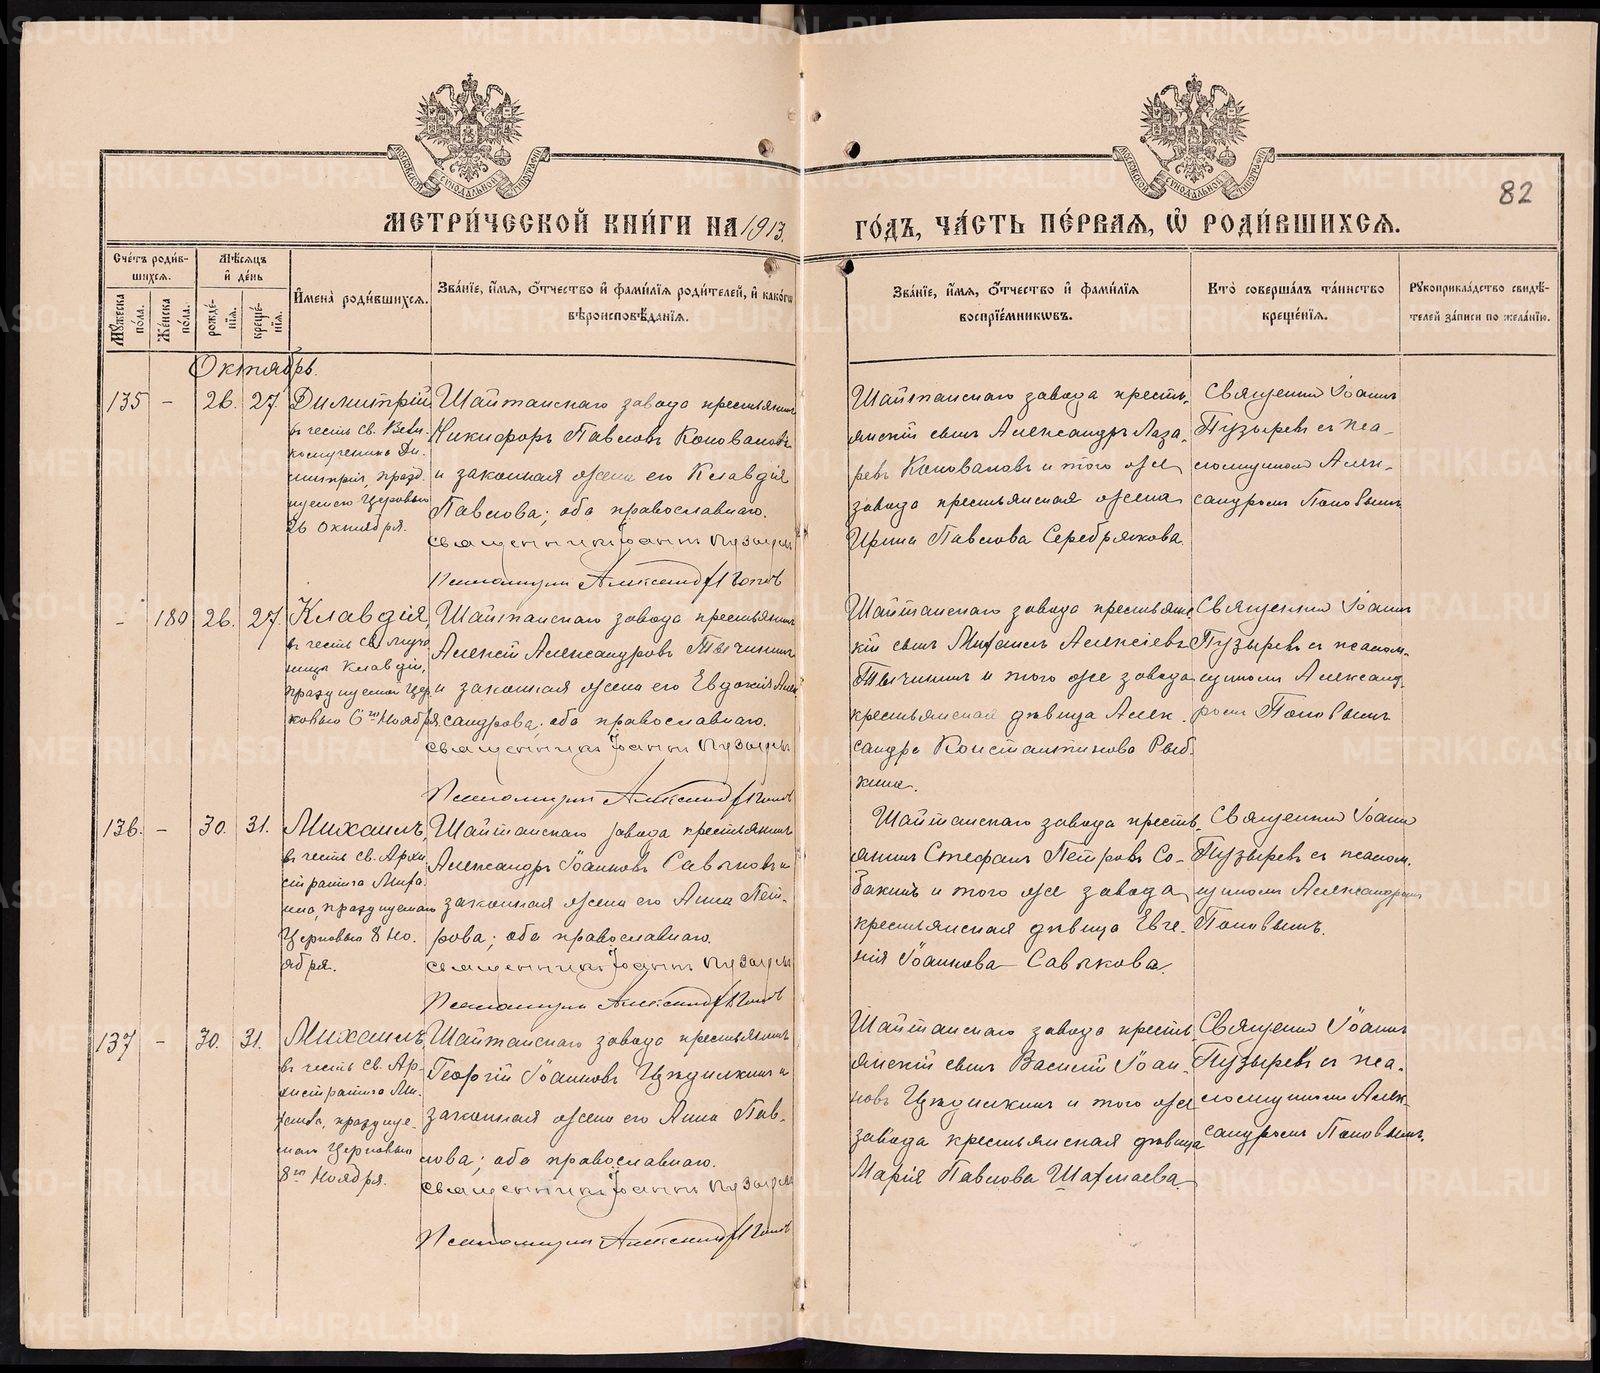 МЕТРИ́ЧЕСКОЙ КНИ́ГИ НА 1913.
ГО́ДЪ, ЧА́СТЬ ПЕ́РВАѦ, Ѡ҆ РОДИ́ВШИХСѦ.
82
Сче́тъ роди́в-
шихсѧ.
Мꙋ́жеска по́ла.
Же́нска по́ла.
Мѣ́сѧцъ
и҆ де́нь
рожде́-
нїѧ.
креще́-
нїѧ.
И҆мена̀ роди́вшихсѧ.
Зва́нїе, и҆́мѧ, ѻ҆́тчество и҆ фами́лїѧ роди́телей, и҆ како́гѡ
вѣроисповѣ́данїѧ.
Зва́нїе, и҆́мѧ, ѻ҆́тчество и҆ фами́лїѧ
воспрїе́мникѡвъ.
Кто̀ соверша́лъ та́инство
креще́нїѧ.
Рꙋкоприкла́дство свидѣ́-
телей за́писи по жела́нїю.
Октябрь.
135 – 26. 27.
Димитрій,
въ честь св. Вели-
комученика Ди-
митрія, празд-
нуемаго Церковью
26 Октября.
Шайтанскаго завода крестьянинъ
Никифоръ Павловъ Коноваловъ
и законная жена его Клавдія
Павлова; оба православнаго.
Священникъ Іоаннъ Пузырев
Псаломщик Александр Попов
Шайтанскаго завода кресть-
янскій сынъ Александръ Лаза-
ревъ Коноваловъ и того же
завода крестьянская жена
Ирина Павлова Серебрякова.
Священник Іоаннъ
Пузыревъ съ пса-
ломщикомъ Алек-
сандромъ Поповымъ
– 180 26. 27.
Клавдія,
въ честь св. муче-
ницы Клавдіи,
празднуемой Цер-
ковью 6го Ноября
Шайтанскаго завода крестьянинъ
Алексѣй Александровъ Тычининъ
и законная жена его Евдокія Алек-
сандрова; оба православнаго.
Священникъ Іоаннъ Пузырев
Псаломщик Александр Попов
Шайтанскаго завода крестьянс-
кій сынъ Михаилъ Алексѣевъ
Тычининъ и того же завода
крестьянская дѣвица Алек-
сандра Константинова Рыб-
кина.
Священник Іоаннъ
Пузыревъ съ псалом-
щикомъ Александ-
ромъ Поповымъ
136. – 30. 31.
Михаилъ,
въ честь св. Архи-
стратига Миха-
ила, празднуемаго
Церковью 8 Но-
ября.
Шайтанскаго завода крестьянинъ
Александръ Іоанновъ Савыковъ и
законная жена его Анна Пет-
рова; оба православнаго.
Священникъ Іоаннъ Пузырев
Псаломщик Александр Попов
Шайтанскаго завода кресть-
янинъ Стефанъ Петровъ Со-
бакинъ и того же завода
крестьянская дѣвица Евге-
нія Іоаннова Савыкова.
Священник Іоаннъ
Пузыревъ съ псалом-
щикомъ Александромъ
Поповымъ.
137 – 30. 31.
Михаилъ
въ честь св. Ар-
хистратига Ми-
хаила, праздуе-
маго Церковью
8го Ноября.
Шайтанскаго завода крестьянинъ
Георгій Іоанновъ Цѣдилкинъ и
законная жена его Анна Пав-
лова; оба православнаго.
Священникъ Іоаннъ Пузырев
Псаломщик Александр Попов
Шайтанскаго завода кресть-
янскій сынъ Василій Іоан-
новъ Цѣдилкинъ и того же
завода крестьянская дѣвица
Марія Павлова Шахмаева.
Священник Іоаннъ
Пузыревъ съ пса-
ломщикомъ Алек-
сандромъ Поповымъ.
METRIKI.GASO-URAL.RU